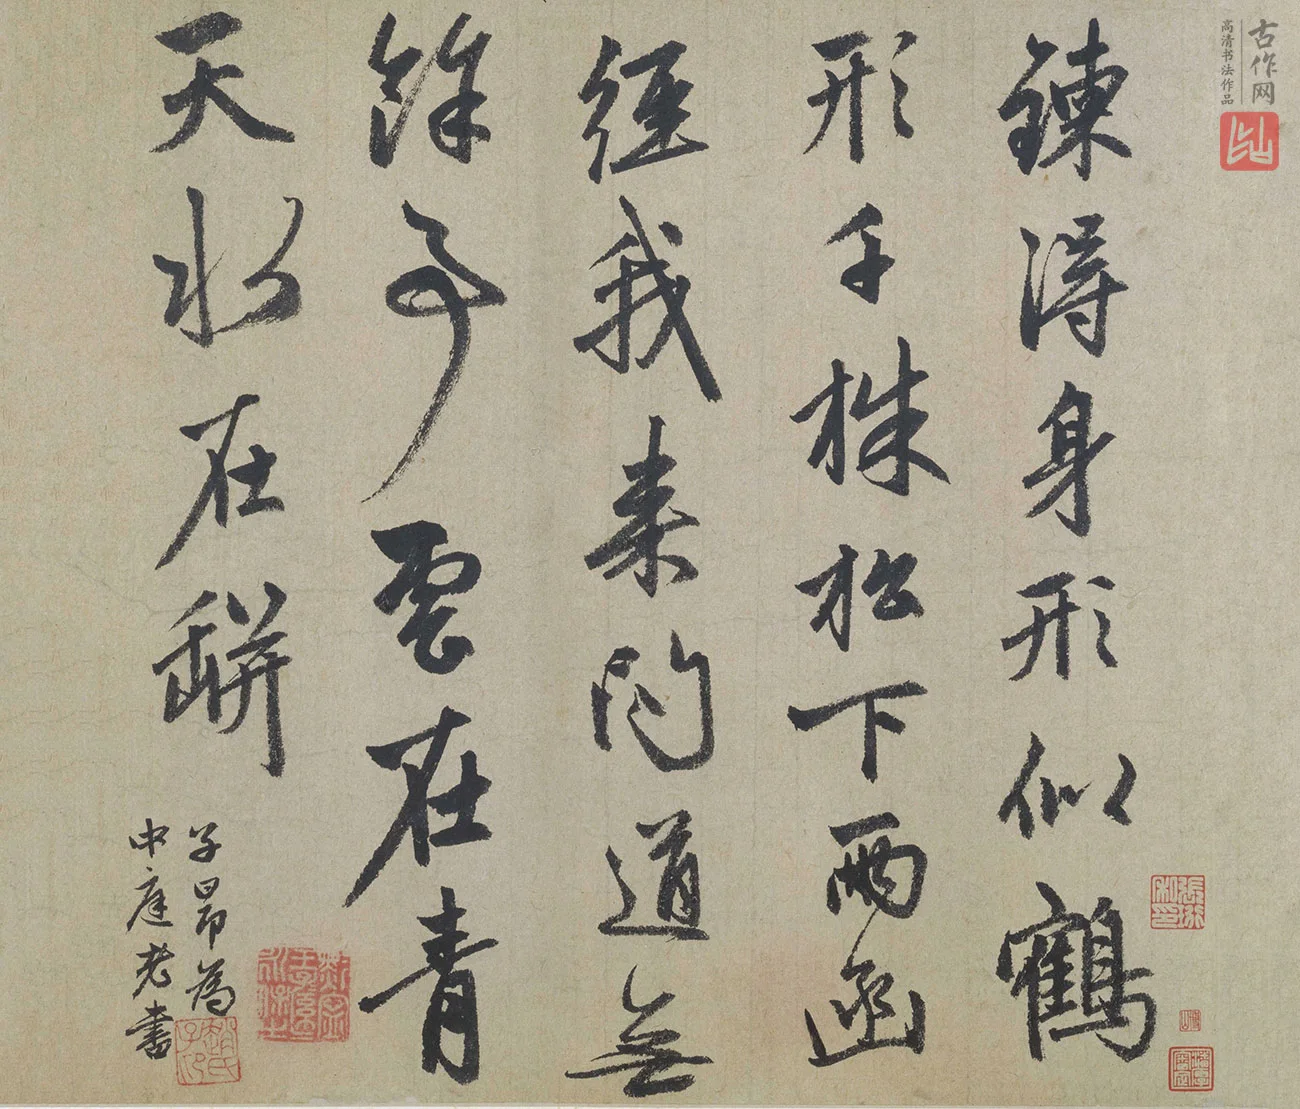 鍊得身形似鶴
形千株松下兩函
經我來問道無
餘事雲在青
天水在缾
子昂為
中庭老書
古作网
高清书法作品
趙氏子印